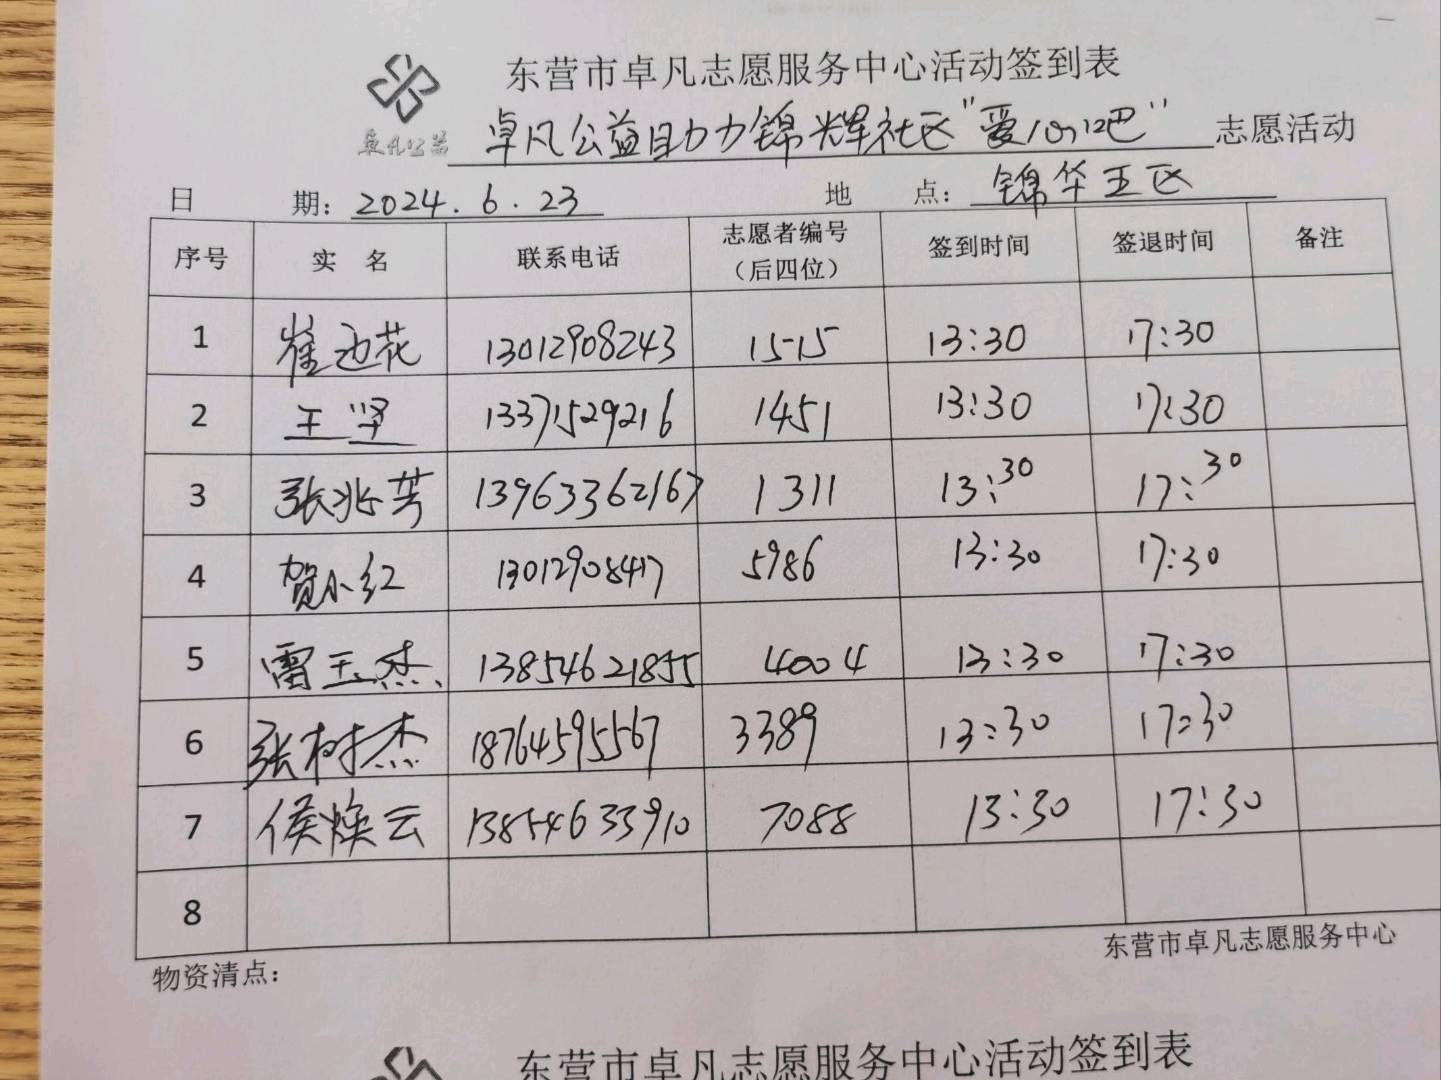 东营市卓凡志愿服务中心活动签到表
卓凡公益
卓凡公益助力锦辉社区"爱心吧" 志愿活动
日 期：2024.6.23 地 点：锦华五区
序号 实 名 联系电话 志愿者编号（后四位） 签到时间 签退时间 备注
1 崔迎花 13012908243 1515 13:30 17:30
2 王坚 13371529216 1451 13:30 17:30
3 张兆芳 13963362167 1311 13:30 17:30
4 贺小红 13012908417 5986 13:30 17:30
5 雷玉杰 13854621855 4004 13:30 17:30
6 张树杰 18764595567 3389 13:30 17:30
7 侯焕云 13854633910 7088 13:30 17:30
8
东营市卓凡志愿服务中心
物资清点：
东营市卓凡志愿服务中心活动签到表